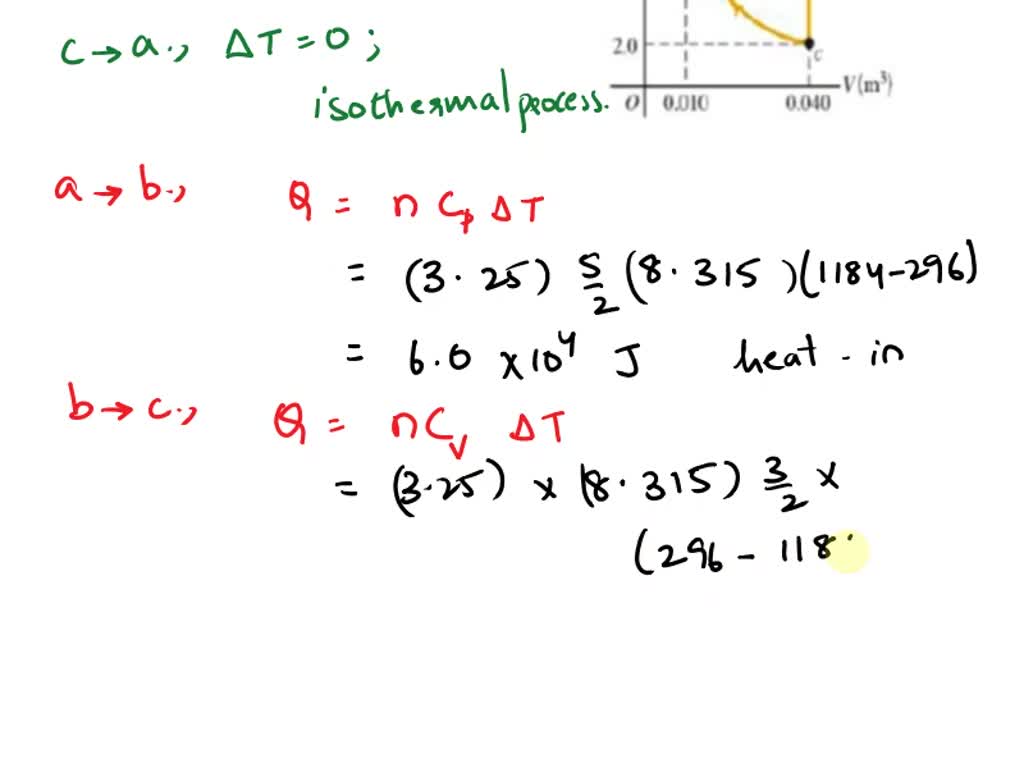 c → a., ΔT = 0 ;
isothermal process.
2.0
c
O 0.010 0.040 V(m³)
a → b., Q = n Cp ΔT
= (3.25) 5/2 (8.315)(1184-296)
= 6.0 ×10⁴ J heat-in
b → c., Q = n Cv ΔT
= (3.25) × (8.315) 3/2 ×
(296 - 118